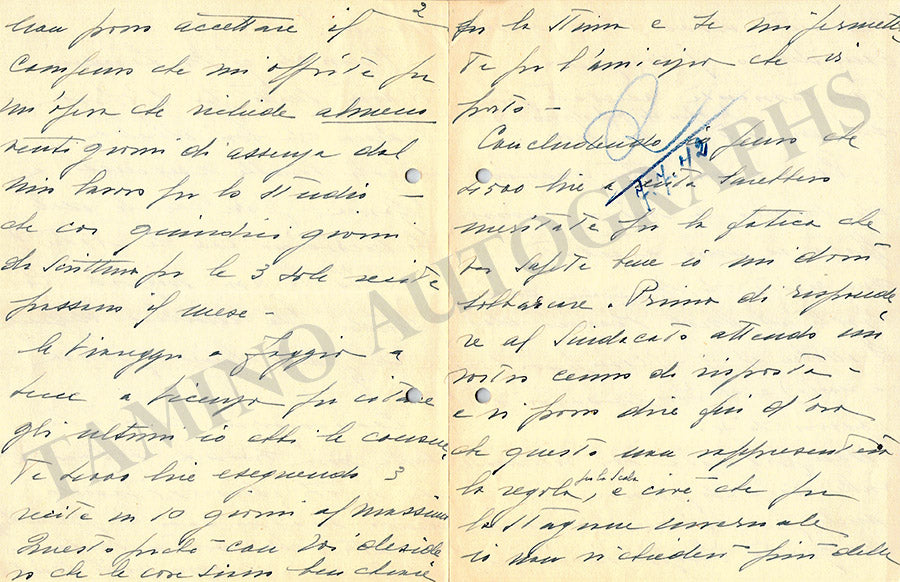 2
non posso accettare il
compenso che mi offrite per
un'opera che richiede almeno
venti giorni di assenza dal
mio lavoro per lo studio —
che coi quindici giorni
di scrittura per le 3 sole recite
passano il mese —
a Viareggio a Foggia a
a Vicenza per citare
gli ultimi io ebbi le consue
te lire eseguendo 3
recite in 10 giorni al massimo
Questo perché con Voi deside
ro che le cose siano ben chiare
per la stima e se mi permette
te per l'amicizia che vi
porto —
Concludendo penso che
4500 lire a recita sarebbero
meritate per la fatica che
Voi sapete bene io mi dovrò
sobbarcare. Prima di risponde
re al Sindacato attendo un
vostro cenno di risposta —
e vi posso dire fin d'ora
che questo non rappresenterà
la regola, per la Scala e cioè che per
la stagione invernale
io non vi chiederò più delle
TAMINO AUTOGRAPHS